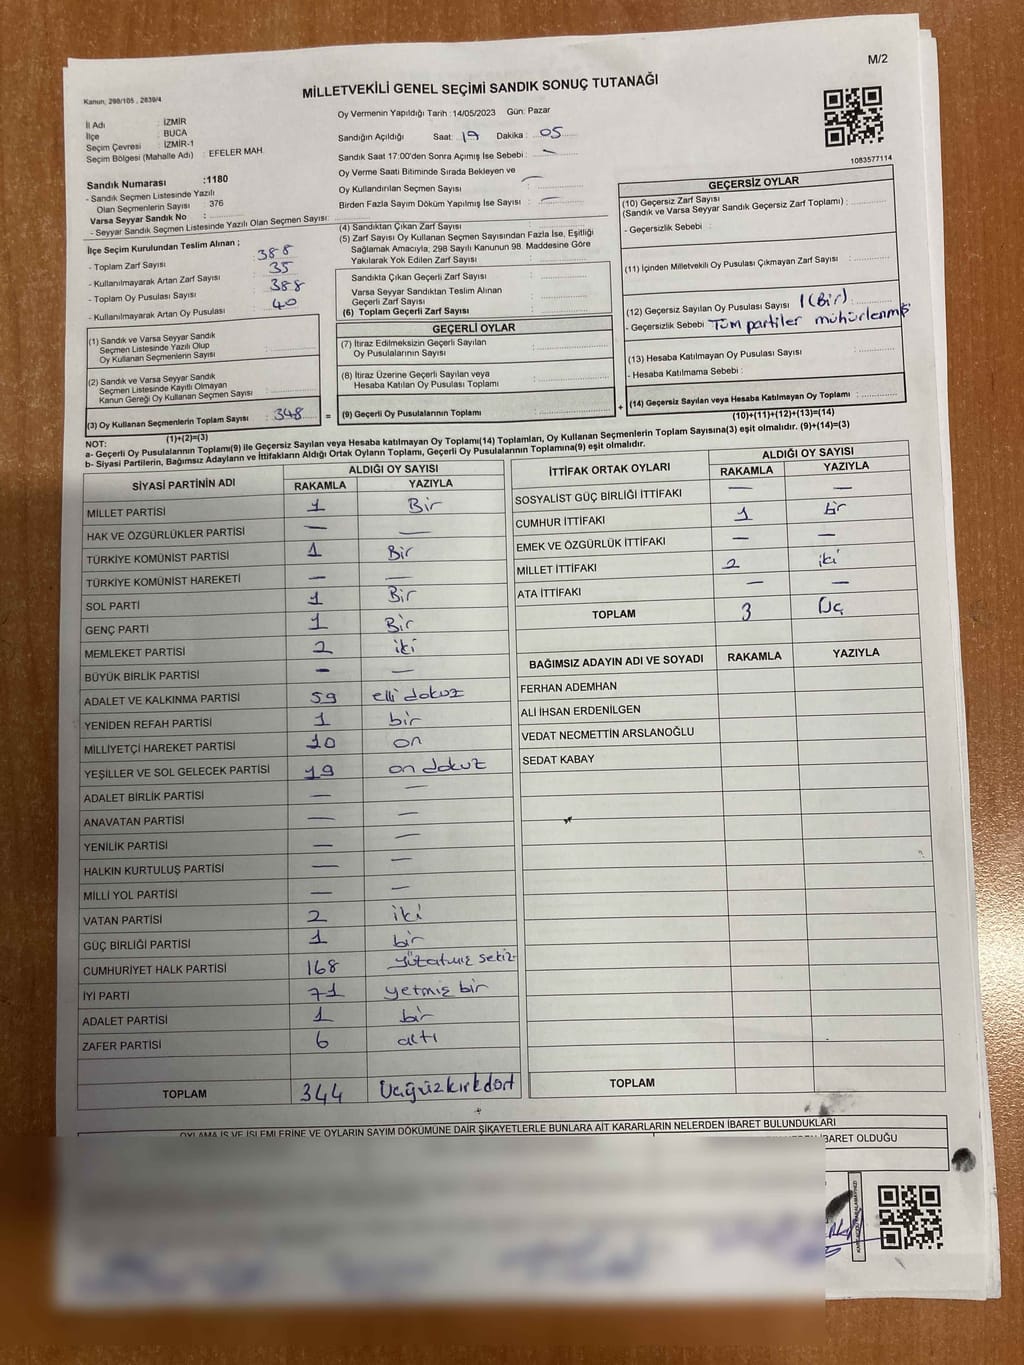 M/2
Kanun, 298/105 , 2839/4
MİLLETVEKİLİ GENEL SEÇİMİ SANDIK SONUÇ TUTANAĞI
İl Adı : İZMİR
İlçe : BUCA
Seçim Çevresi : İZMİR-1
Seçim Bölgesi (Mahalle Adı) : EFELER MAH.
Sandık Numarası :1180
- Sandık Seçmen Listesinde Yazılı
Olan Seçmenlerin Sayısı 376
Varsa Seyyar Sandık No :
- Seyyar Sandık Seçmen Listesinde Yazılı Olan Seçmen Sayısı:
İlçe Seçim Kurulundan Teslim Alınan ;
- Toplam Zarf Sayısı : 388
- Kullanılmayarak Artan Zarf Sayısı : 35
- Toplam Oy Pusulası Sayısı : 388
- Kullanılmayarak Artan Oy Pusulası : 40
(1) Sandık ve Varsa Seyyar Sandık
Seçmen Listesinde Yazılı Olup
Oy Kullanan Seçmenlerin Sayısı :
(2) Sandık ve Varsa Seyyar Sandık
Seçmen Listesinde Kayıtlı Olmayan
Kanun Gereği Oy Kullanan Seçmen Sayısı :
(3) Oy Kullanan Seçmenlerin Toplam Sayısı : 348
(1)+(2)=(3)
Oy Vermenin Yapıldığı Tarih :14/05/2023 Gün: Pazar
Sandığın Açıldığı Saat: 19 Dakika : 05
Sandık Saat 17:00'den Sonra Açımış İse Sebebi : —
Oy Verme Saati Bitiminde Sırada Bekleyen ve
Oy Kullandırılan Seçmen Sayısı : —
Birden Fazla Sayım Döküm Yapılmış İse Sayısı : —
(4) Sandıktan Çıkan Zarf Sayısı :
(5) Zarf Sayısı Oy Kullanan Seçmen Sayısından Fazla İse, Eşitliği
Sağlamak Amacıyla, 298 Sayılı Kanunun 98. Maddesine Göre
Yakılarak Yok Edilen Zarf Sayısı :
Sandıkta Çıkan Geçerli Zarf Sayısı :
Varsa Seyyar Sandıktan Teslim Alınan
Geçerli Zarf Sayısı :
(6) Toplam Geçerli Zarf Sayısı :
GEÇERLİ OYLAR
(7) İtiraz Edilmeksizin Geçerli Sayılan
Oy Pusulalarının Sayısı :
(8) İtiraz Üzerine Geçerli Sayılan veya
Hesaba Katılan Oy Pusulası Toplamı :
= (9) Geçerli Oy Pusulalarının Toplamı : +
1083577114
GEÇERSİZ OYLAR
(10) Geçersiz Zarf Sayısı
(Sandık ve Varsa Seyyar Sandık Geçersiz Zarf Toplamı) :
- Geçersizlik Sebebi :
(11) İçinden Milletvekili Oy Pusulası Çıkmayan Zarf Sayısı :
(12) Geçersiz Sayılan Oy Pusulası Sayısı : 1 (Bir)
- Geçersizlik Sebebi : Tüm partiler mühürlenmiş
(13) Hesaba Katılmayan Oy Pusulası Sayısı :
- Hesaba Katılmama Sebebi :
(14) Geçersiz Sayılan veya Hesaba Katılmayan Oy Toplamı :
(10)+(11)+(12)+(13)=(14)
NOT:
a- Geçerli Oy Pusulalarının Toplamı(9) ile Geçersiz Sayılan veya Hesaba katılmayan Oy Toplamı(14) Toplamları, Oy Kullanan Seçmenlerin Toplam Sayısına(3) eşit olmalıdır. (9)+(14)=(3)
b- Siyasi Partilerin, Bağımsız Adayların ve İttifakların Aldığı Ortak Oyların Toplamı, Geçerli Oy Pusulalarının Toplamına(9) eşit olmalıdır.
SİYASİ PARTİNİN ADI ALDIĞI OY SAYISI
RAKAMLA YAZIYLA
MİLLET PARTİSİ 1 Bir
HAK VE ÖZGÜRLÜKLER PARTİSİ — —
TÜRKİYE KOMÜNİST PARTİSİ 1 Bir
TÜRKİYE KOMÜNİST HAREKETİ — —
SOL PARTİ 1 Bir
GENÇ PARTİ 1 Bir
MEMLEKET PARTİSİ 2 iki
BÜYÜK BİRLİK PARTİSİ — —
ADALET VE KALKINMA PARTİSİ 59 elli dokuz
YENİDEN REFAH PARTİSİ 1 bir
MİLLİYETÇİ HAREKET PARTİSİ 10 on
YEŞİLLER VE SOL GELECEK PARTİSİ 19 on dokuz
ADALET BİRLİK PARTİSİ — —
ANAVATAN PARTİSİ — —
YENİLİK PARTİSİ — —
HALKIN KURTULUŞ PARTİSİ — —
MİLLİ YOL PARTİSİ — —
VATAN PARTİSİ 2 iki
GÜÇ BİRLİĞİ PARTİSİ 1 bir
CUMHURİYET HALK PARTİSİ 168 yüzatmış sekiz
İYİ PARTİ 71 yetmiş bir
ADALET PARTİSİ 1 bir
ZAFER PARTİSİ 6 altı
TOPLAM 344 Üçyüzkırkdört
İTTİFAK ORTAK OYLARI ALDIĞI OY SAYISI
RAKAMLA YAZIYLA
SOSYALİST GÜÇ BİRLİĞİ İTTİFAKI — —
CUMHUR İTTİFAKI 1 bir
EMEK VE ÖZGÜRLÜK İTTİFAKI — —
MİLLET İTTİFAKI 2 iki
ATA İTTİFAKI — —
TOPLAM 3 Üç
BAĞIMSIZ ADAYIN ADI VE SOYADI RAKAMLA YAZIYLA
FERHAN ADEMHAN
ALİ İHSAN ERDENİLGEN
VEDAT NECMETTİN ARSLANOĞLU
SEDAT KABAY
TOPLAM
OYLAMA İŞ VE İŞLEMLERİNE VE OYLARIN SAYIM DÖKÜMÜNE DAİR ŞİKAYETLERLE BUNLARA AİT KARARLARIN NELERDEN İBARET BULUNDUKLARI
İBARET OLDUĞU